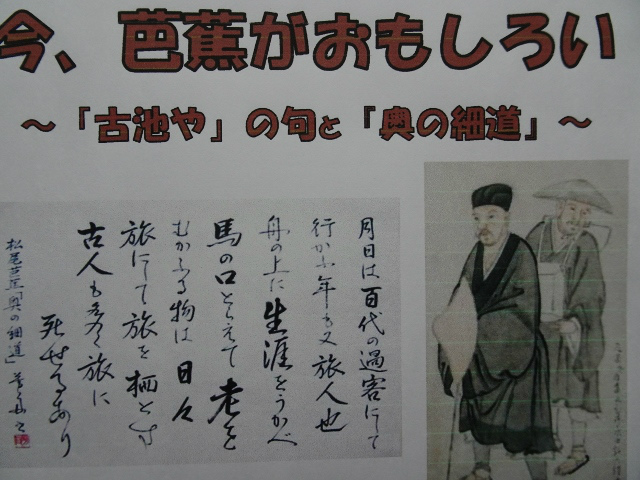 今、芭蕉がおもしろい
～「古池や」の句と『奥の細道』～
月日は百代の過客にして
行かふ年も又旅人也
舟の上に生涯をうかべ
馬の口とらえて老を
むかふる物は日々
旅にして旅を栖とす
古人も多く旅に
死せるあり
松尾芭蕉「奥の細道」